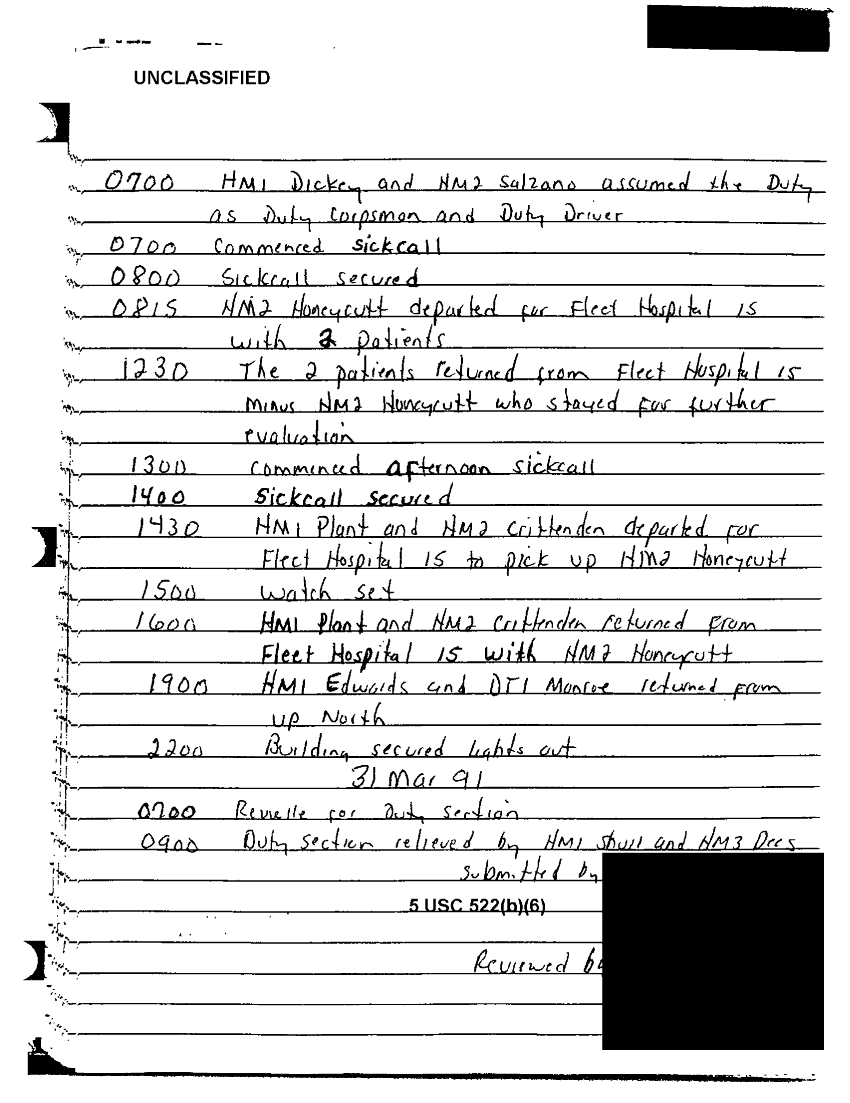 UNCLASSIFIED
0700 HM1 Dickey and HM2 Salzano assumed the Duty
as Duty Corpsman and Duty Driver
0700 Commenced sickcall
0800 Sickcall secured
0815 HM2 Honeycutt departed for Fleet Hospital 15
with 2 patients
1230 The 2 patients returned from Fleet Hospital 15
minus HM2 Honeycutt who stayed for further
evaluation
1300 commenced afternoon sickcall
1400 Sickcall secured
1430 HM1 Plant and HM2 Crittenden departed for
Fleet Hospital 15 to pick up HM2 Honeycutt
1500 watch set
1600 HM1 Plant and HM2 Crittenden returned from
Fleet Hospital 15 with HM2 Honeycutt
1900 HM1 Edwards and DT1 Monroe returned from
up North
2200 Building secured lights out
31 Mar 91
0700 Revielle for Duty section
0900 Duty section relieved by HM1 Shull and HM3 Dees
submitted by
5 USC 522(b)(6)
Reviewed by